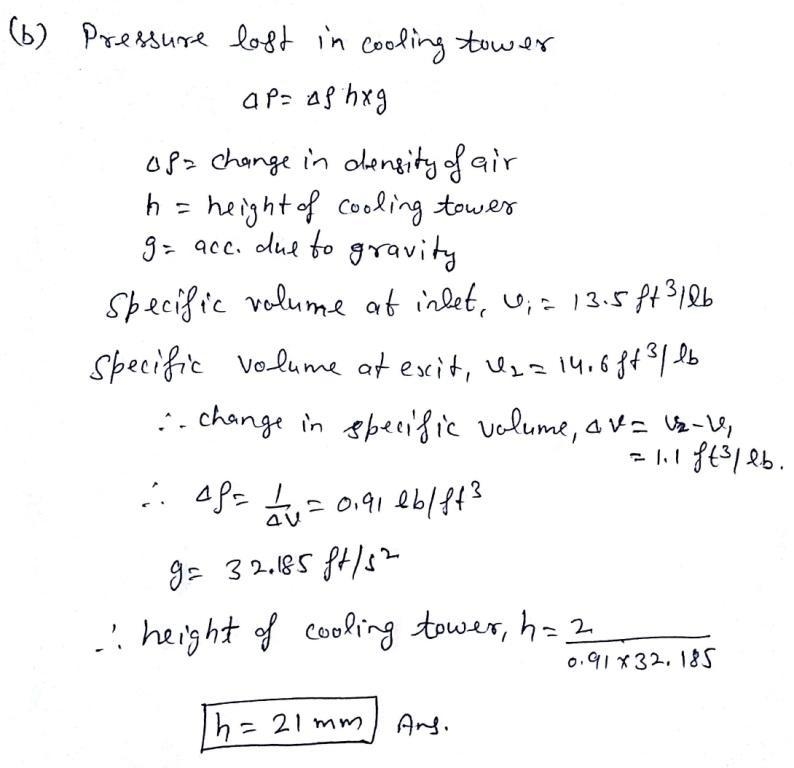 (b) Pressure lost in cooling tower
ΔP = Δρ h×g
Δρ = change in density of air
h = height of cooling tower
g = acc. due to gravity
Specific volume at inlet, v₁ = 13.5 ft³/lb
Specific volume at exit, v₂ = 14.6 ft³/lb
∴ change in specific volume, Δv = v₂-v₁
= 1.1 ft³/lb.
∴ Δρ = 1/Δv = 0.91 lb/ft³
g = 32.185 ft/s²
∴ height of cooling tower, h = 2/(0.91×32.185)
h = 21 mm Ans.